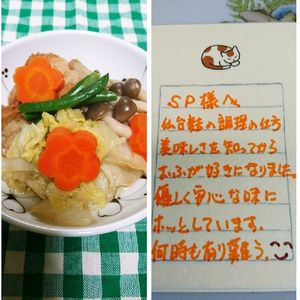 SP様へ
仙台麩の調理の仕方
美味しさを知ってから
おふが好きになりました。
優しく安心な味に
ホッとしています。
何時も有り難う。